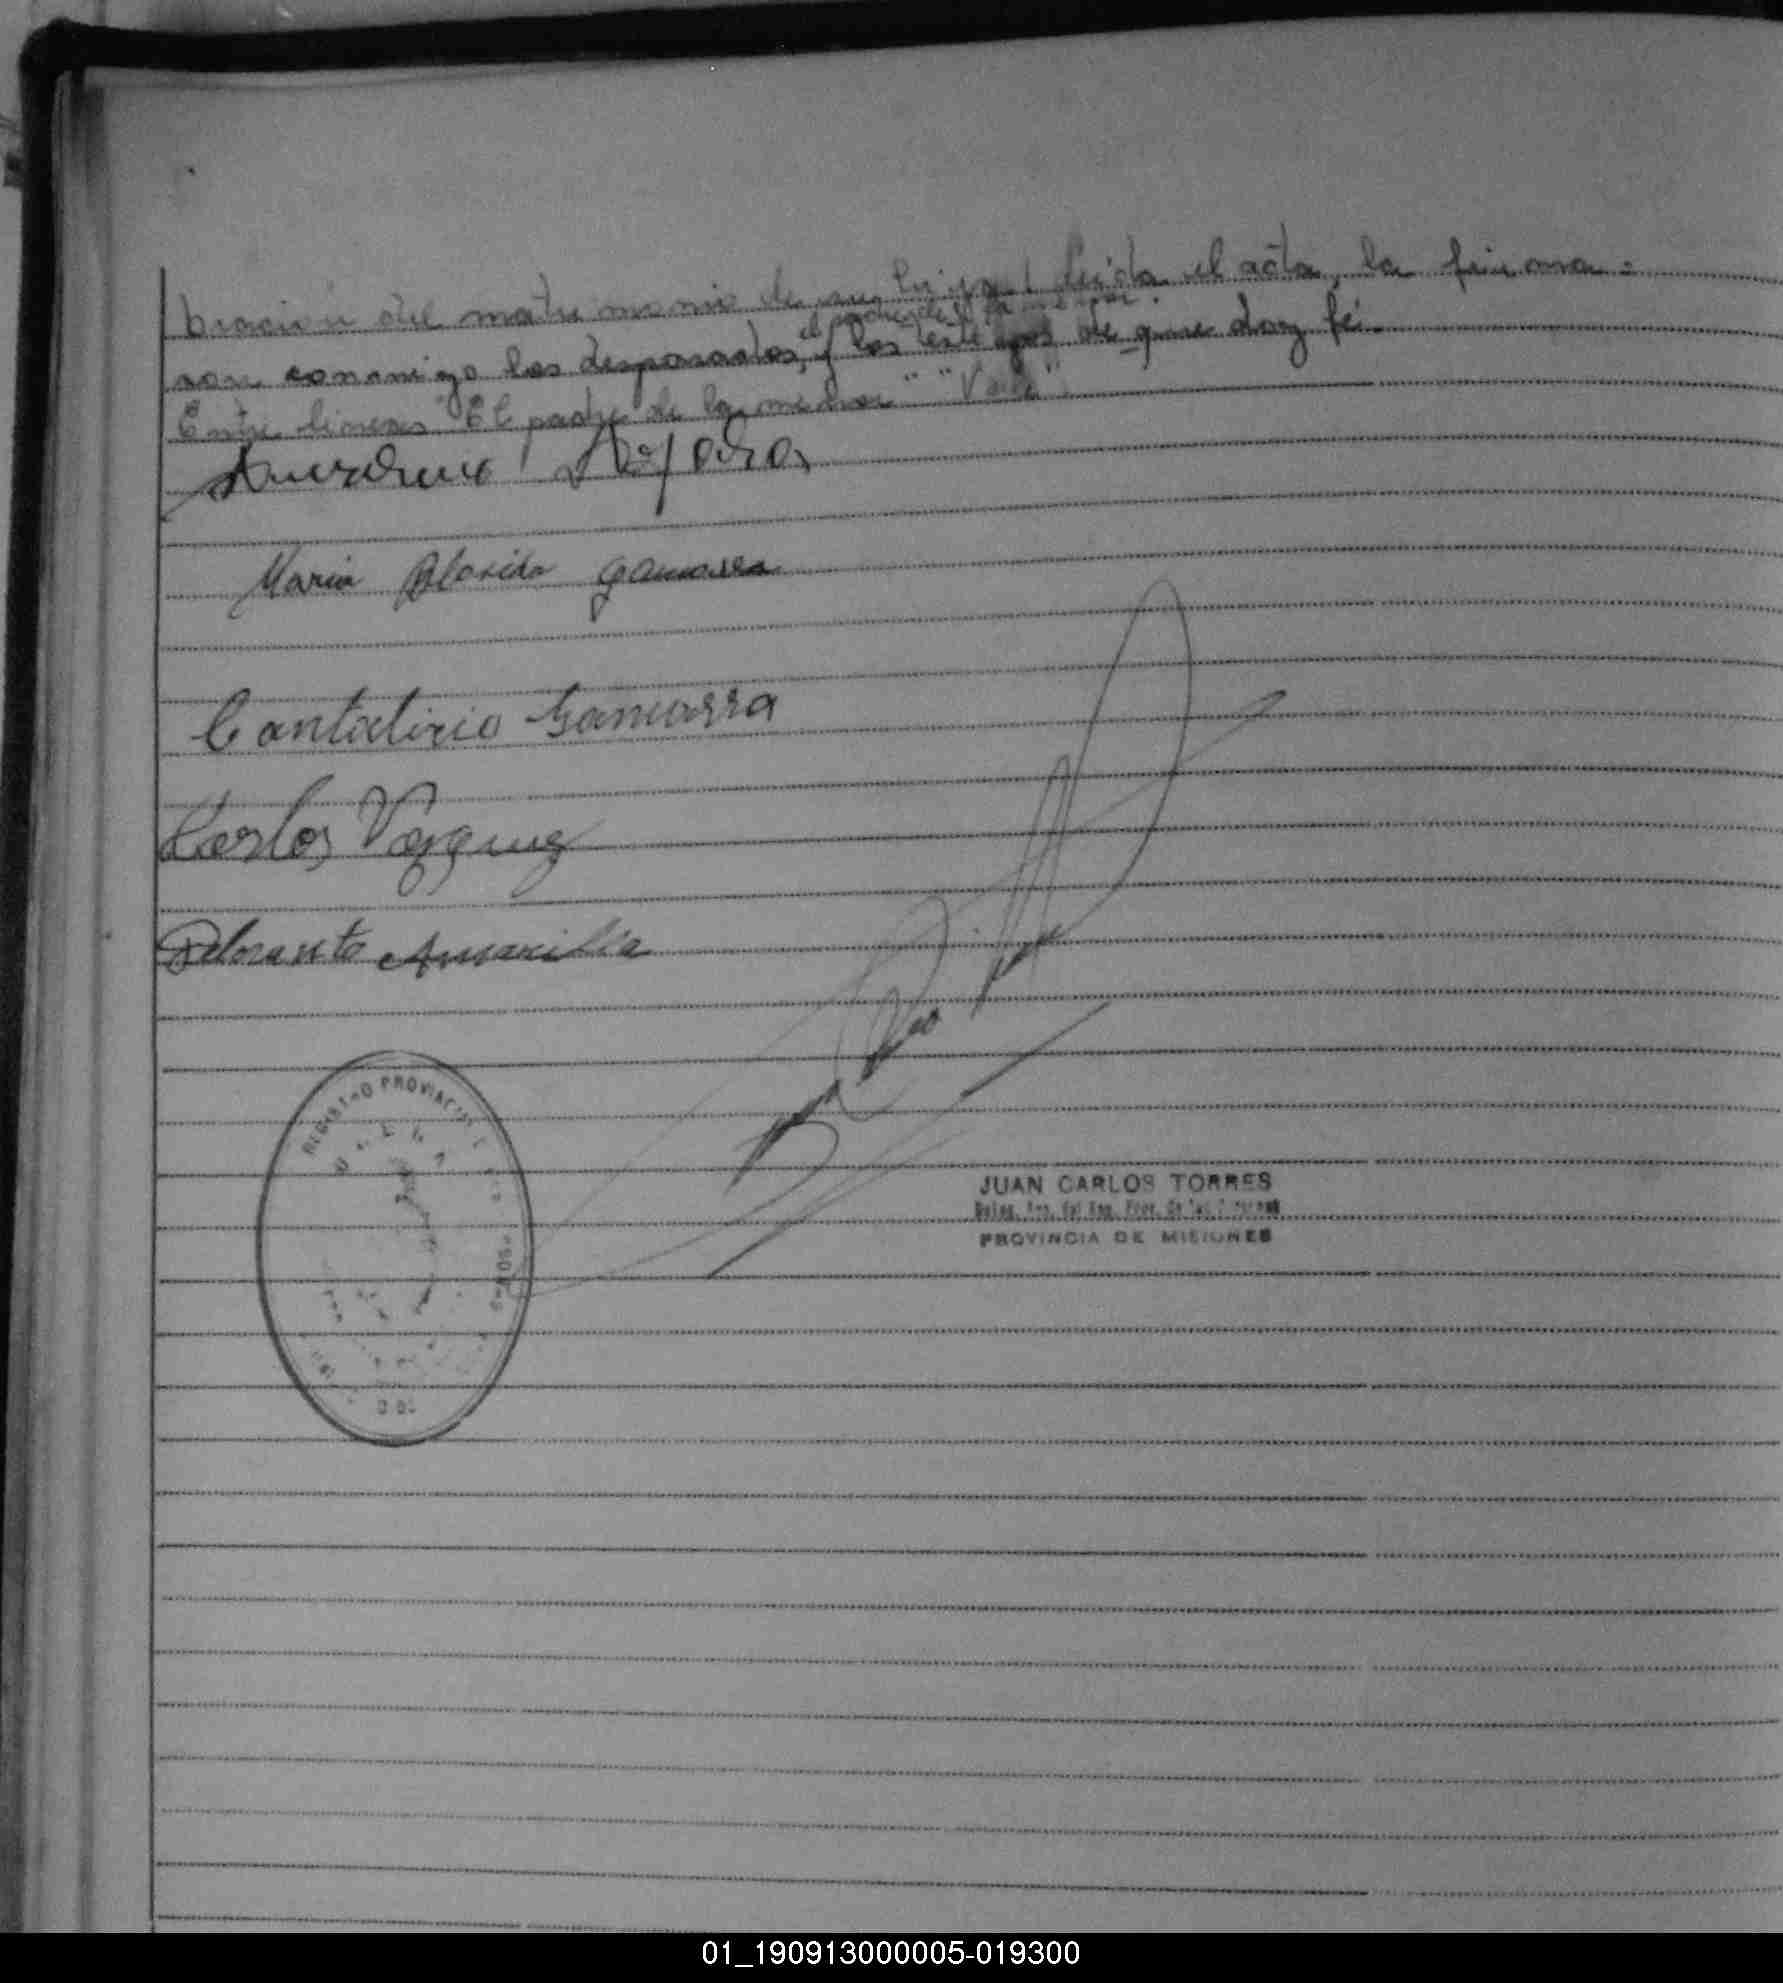 bración del matrimonio de su hija; leída el acta, la firma=
el padre de la menor.
ron conmigo los desposados, y los testigos de que doy fé.
Entre lineas "El padre de la menor" "Vale".
Maria Florida Gamarra
Cantalirio Gamarra
Carlos Vasquez
Amarilla
REGISTRO PROVINCIAL
JUAN CARLOS TORRES
PROVINCIA DE MISIONES
01_190913000005-019300